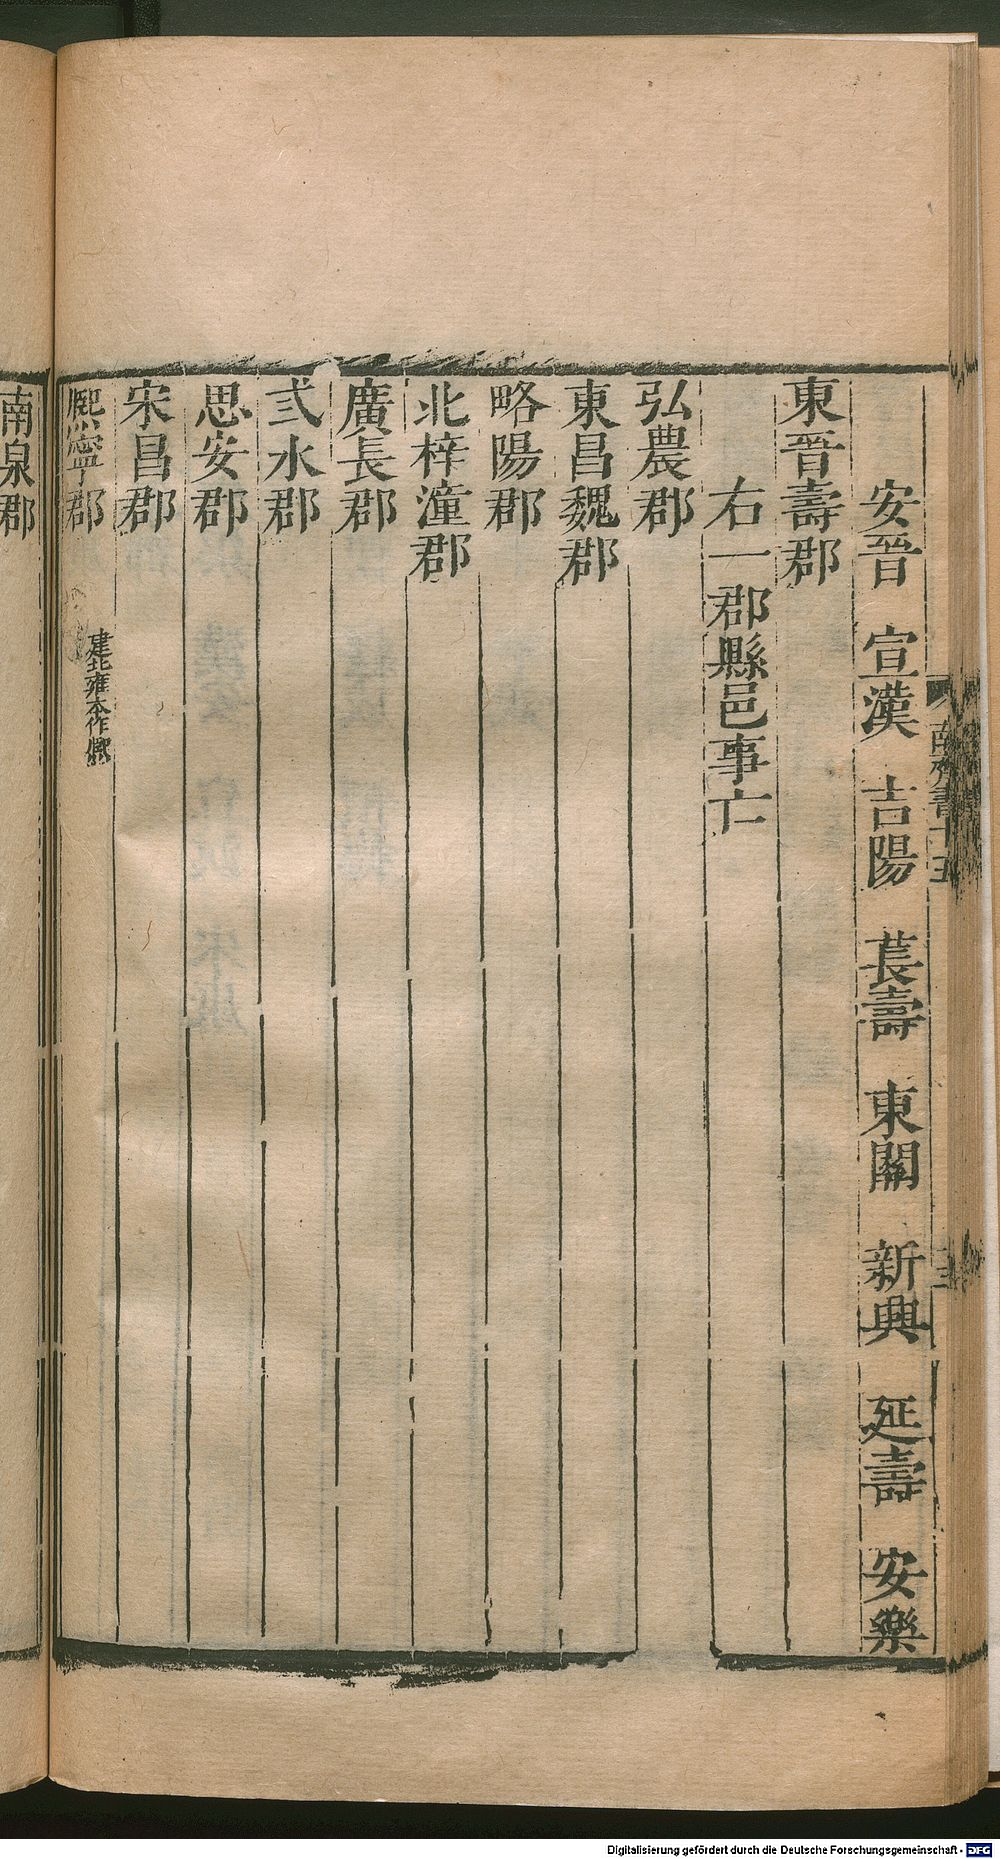 安晉　宣漢　吉陽　萇壽　東關　新興　延壽　安樂
東晉壽郡
右一郡縣邑事亡
弘農郡
東昌魏郡
略陽郡
北梓潼郡
廣長郡
弍水郡
思安郡
宋昌郡
熙寧郡
建北雍本作
南泉郡
南齊書十五
Digitalisierung gefördert durch die Deutsche Forschungsgemeinschaft - DFG